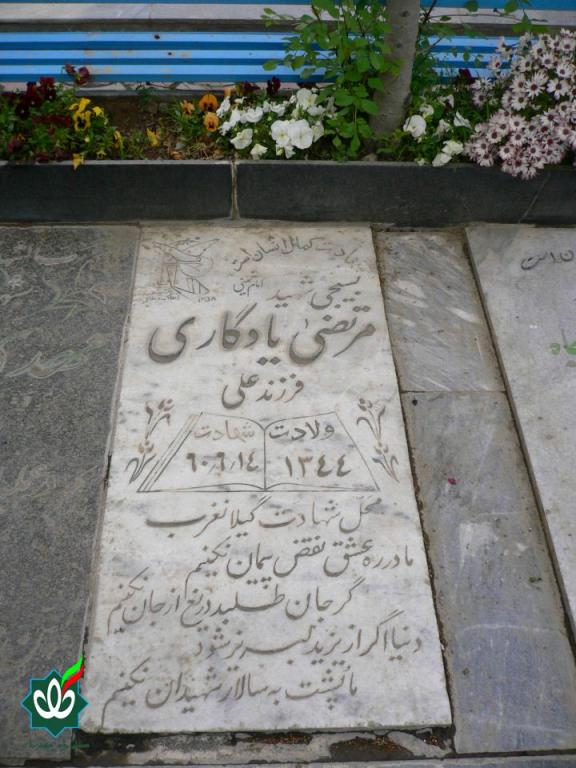 شهادت کمال انسان است
امام خمینی
بسیجی شهید
مرتضی یادگاری
فرزند علی
ولادت شهادت
۱۳۴۴ ۶۰٫۶٫۱۴
محل شهادت گیلانغرب
ما در ره عشق نقض پیمان نکنیم
گر جان طلبد دریغ از جان نکنیم
دنیا اگر از یزید لبریز شود
ما پشت به سالار شهیدان نکنیم